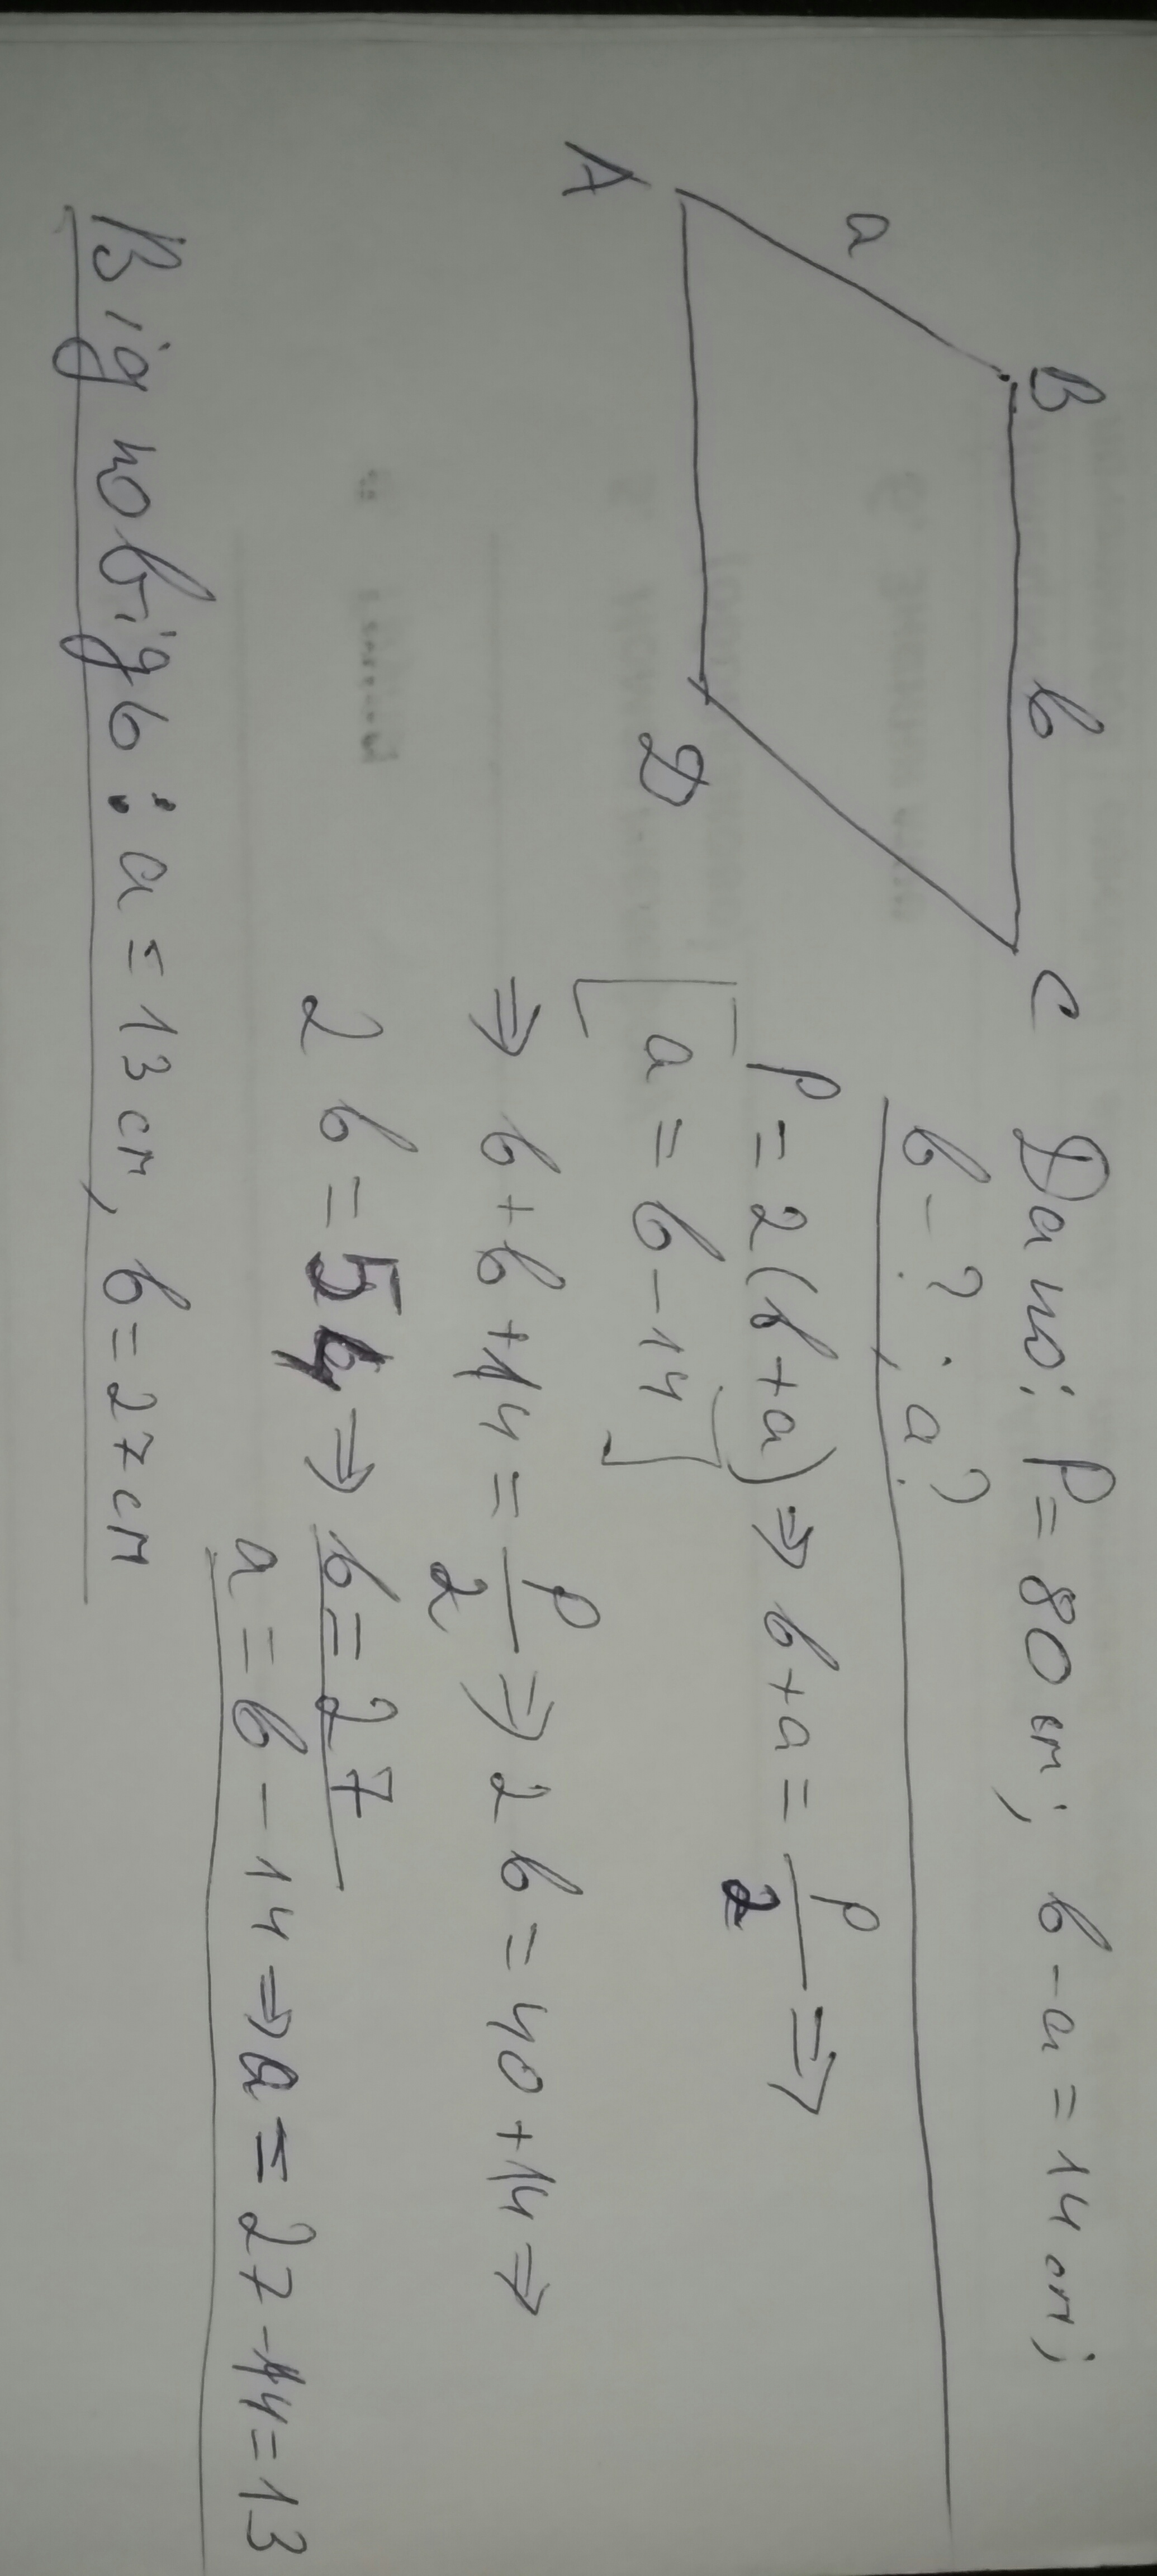 B b C
a
A D
Дано: P = 80 см; b - a = 14 см;
b - ? ; a?
P = 2(b + a) ⇒ b + a = P/2 ⇒
[a = b - 14]
⇒ b + b + 14 = P/2 ⇒ 2b = 40 + 14 ⇒
2b = 54 ⇒ b = 27
a = b - 14 ⇒ a = 27 - 14 = 13
Відповідь: a = 13 см, b = 27 см